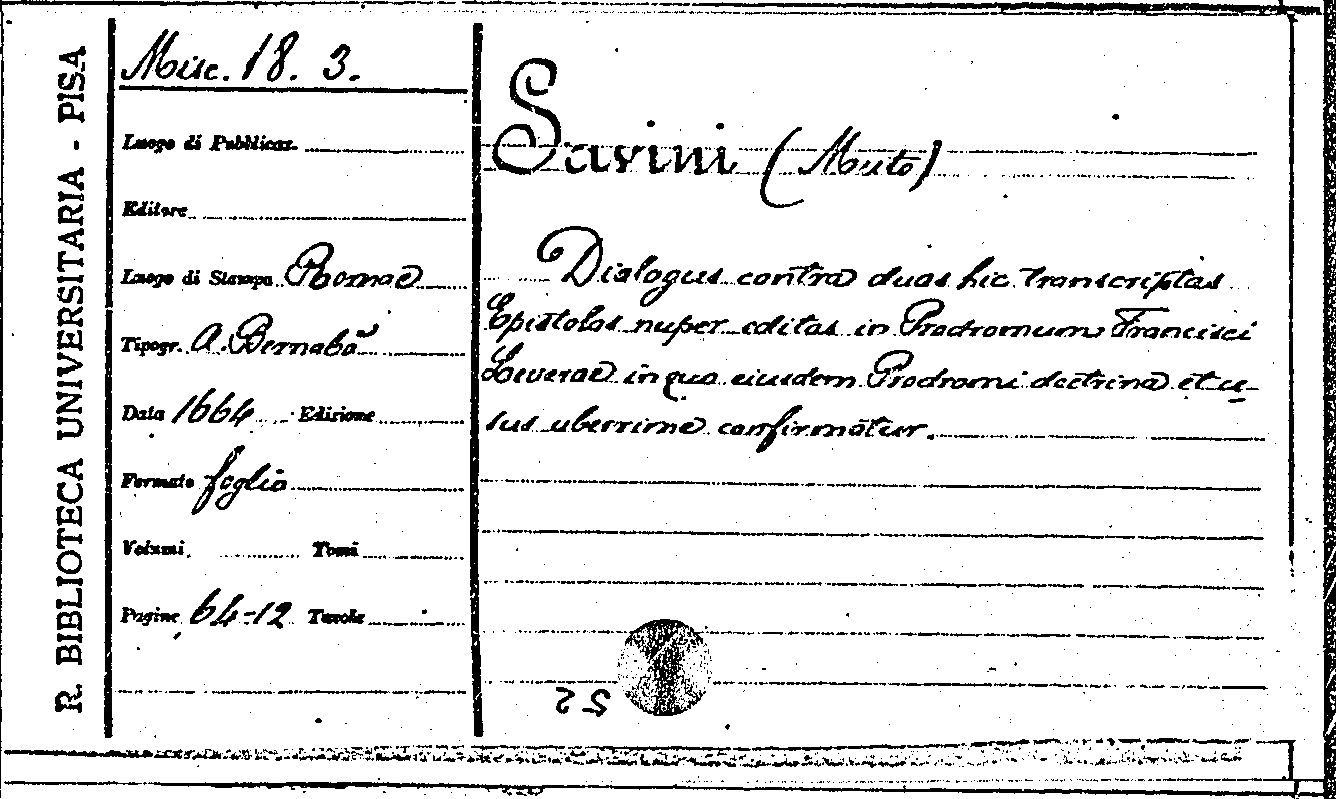 R. BIBLIOTECA UNIVERSITARIA - PISA
Misc. 18. 3.
Luogo di Pubblicaz.
Editore
Luogo di Stampa Romae
Tipogr. A. Bernabò
Data 1664 Edizione
Formato foglio
Volumi Tomi
Pagine 64-12 Tavole
Savini (Muto)
Dialogus contra duas hic transcriptas
Epistolas nuper editas in Prodromum Francisci
Leverae in quo eiusdem Prodromi doctrina et u-
sus uberrime confirmatur.
52